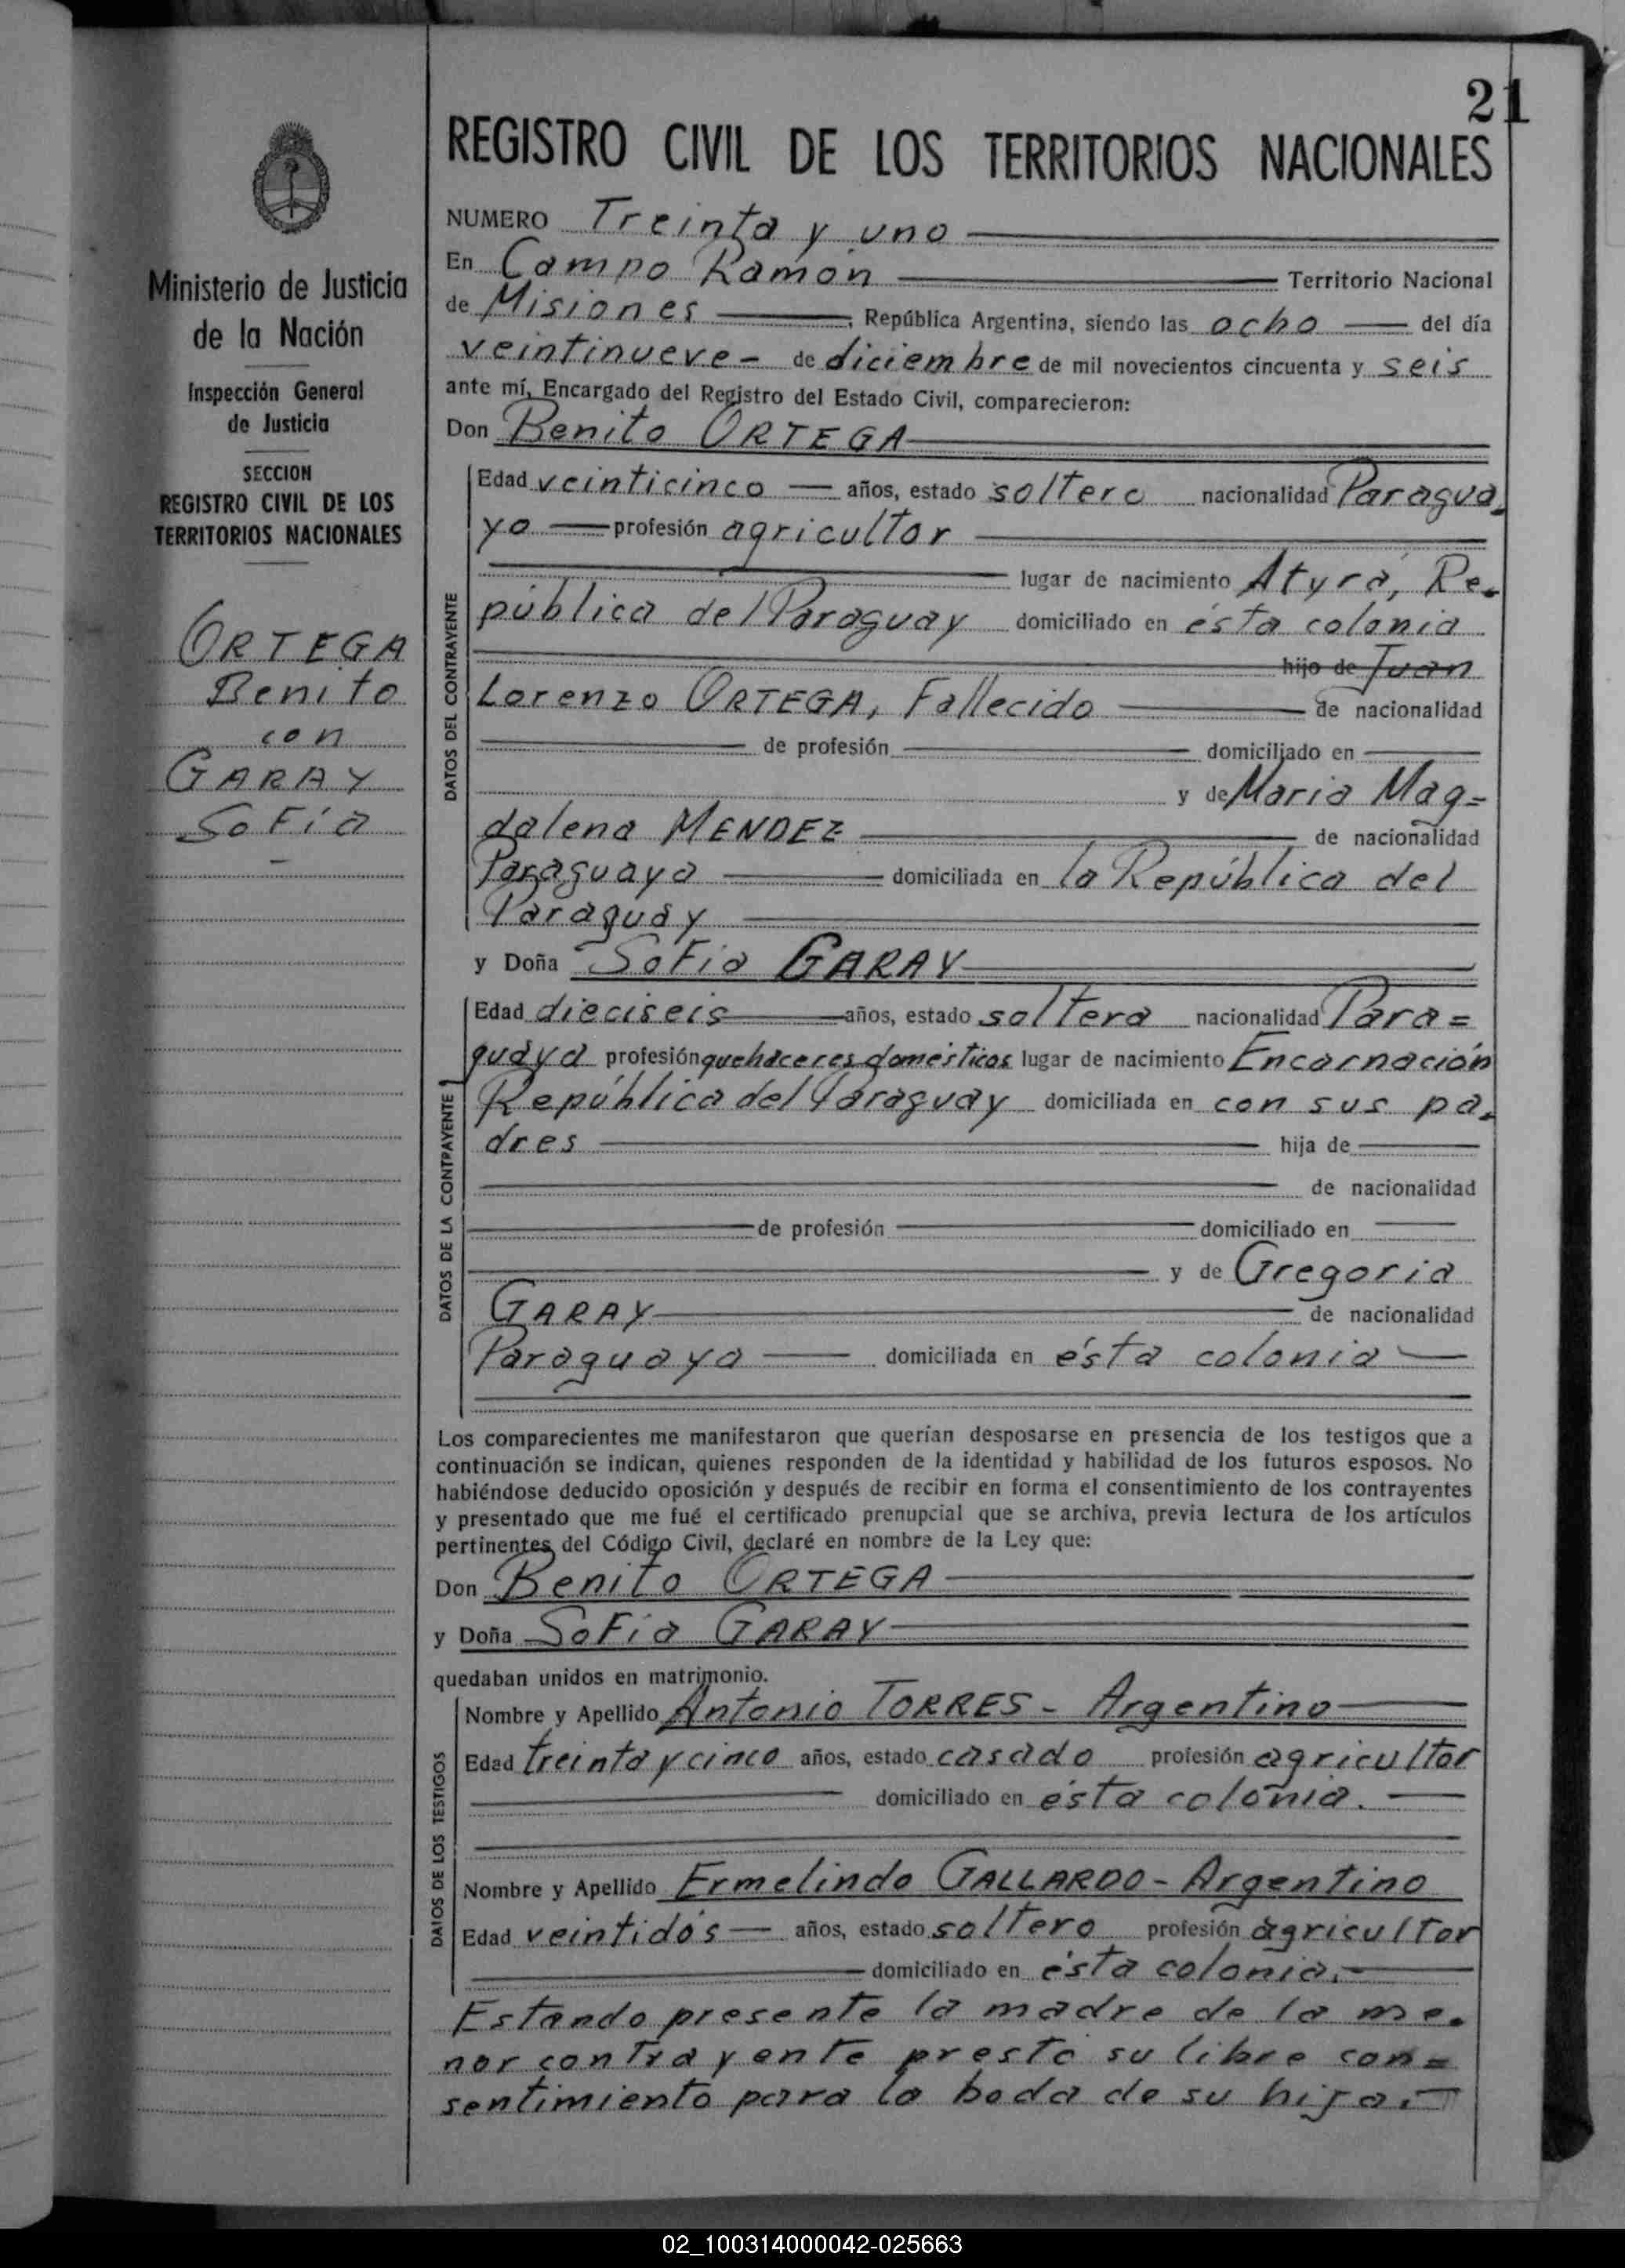 21
REGISTRO CIVIL DE LOS TERRITORIOS NACIONALES
Ministerio de Justicia
de la Nación
Inspección General
de Justicia
SECCION
REGISTRO CIVIL DE LOS
TERRITORIOS NACIONALES
ORTEGA
Benito
con
GARAY
Sofía
NUMERO Treinta y uno
En Campo Ramón Territorio Nacional
de Misiones, República Argentina, siendo las ocho del día
veintinueve - de diciembre de mil novecientos cincuenta y seis
ante mí, Encargado del Registro del Estado Civil, comparecieron:
Don Benito ORTEGA
DATOS DEL CONTRAYENTE
Edad veinticinco años, estado soltero nacionalidad Paragua-
yo profesión agricultor
lugar de nacimiento Atyrá, Re-
pública del Paraguay domiciliado en ésta colonia
hijo de Juan
Lorenzo ORTEGA, Fallecido de nacionalidad
de profesión domiciliado en
y de Maria Mag=
dalena MENDEZ de nacionalidad
Paraguaya domiciliada en la República del
Paraguay
y Doña Sofía GARAY
DATOS DE LA CONTRAYENTE
Edad dieciseis años, estado soltera nacionalidad Para=
guaya profesión quehaceres domésticos lugar de nacimiento Encarnación
República del Paraguay domiciliada en con sus pa-
dres hija de
de nacionalidad
de profesión domiciliado en
y de Gregoria
GARAY de nacionalidad
Paraguaya domiciliada en ésta colonia
Los comparecientes me manifestaron que querían desposarse en presencia de los testigos que a
continuación se indican, quienes responden de la identidad y habilidad de los futuros esposos. No
habiéndose deducido oposición y después de recibir en forma el consentimiento de los contrayentes
y presentado que me fué el certificado prenupcial que se archiva, previa lectura de los artículos
pertinentes del Código Civil, declaré en nombre de la Ley que:
Don Benito ORTEGA
y Doña Sofía GARAY
quedaban unidos en matrimonio.
DATOS DE LOS TESTIGOS
Nombre y Apellido Antonio TORRES - Argentino
Edad treinta y cinco años, estado casado profesión agricultor
domiciliado en ésta colonia.
Nombre y Apellido Ermelindo GALLARDO - Argentino
Edad veintidós años, estado soltero profesión agricultor
domiciliado en ésta colonia.
Estando presente la madre de la me-
nor contrayente prestó su libre con=
sentimiento para la boda de su hija.
02_100314000042-025663